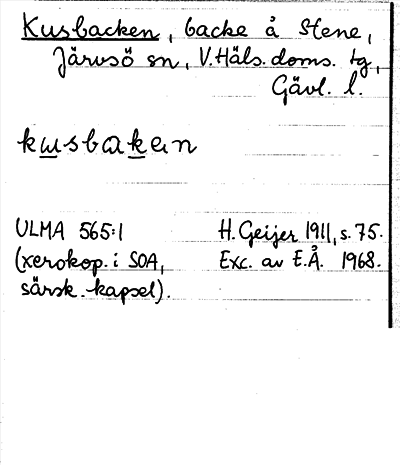 Kusbacken, backe å Stene,
Järvsö sn, V. Häls. doms. tg,
Gävl. l.
kusbakan
ULMA 565:1 H. Geijer 1911, s. 75.
(xerokop. i SOA, Exc. av E.Å. 1968.
särsk. kapsel).